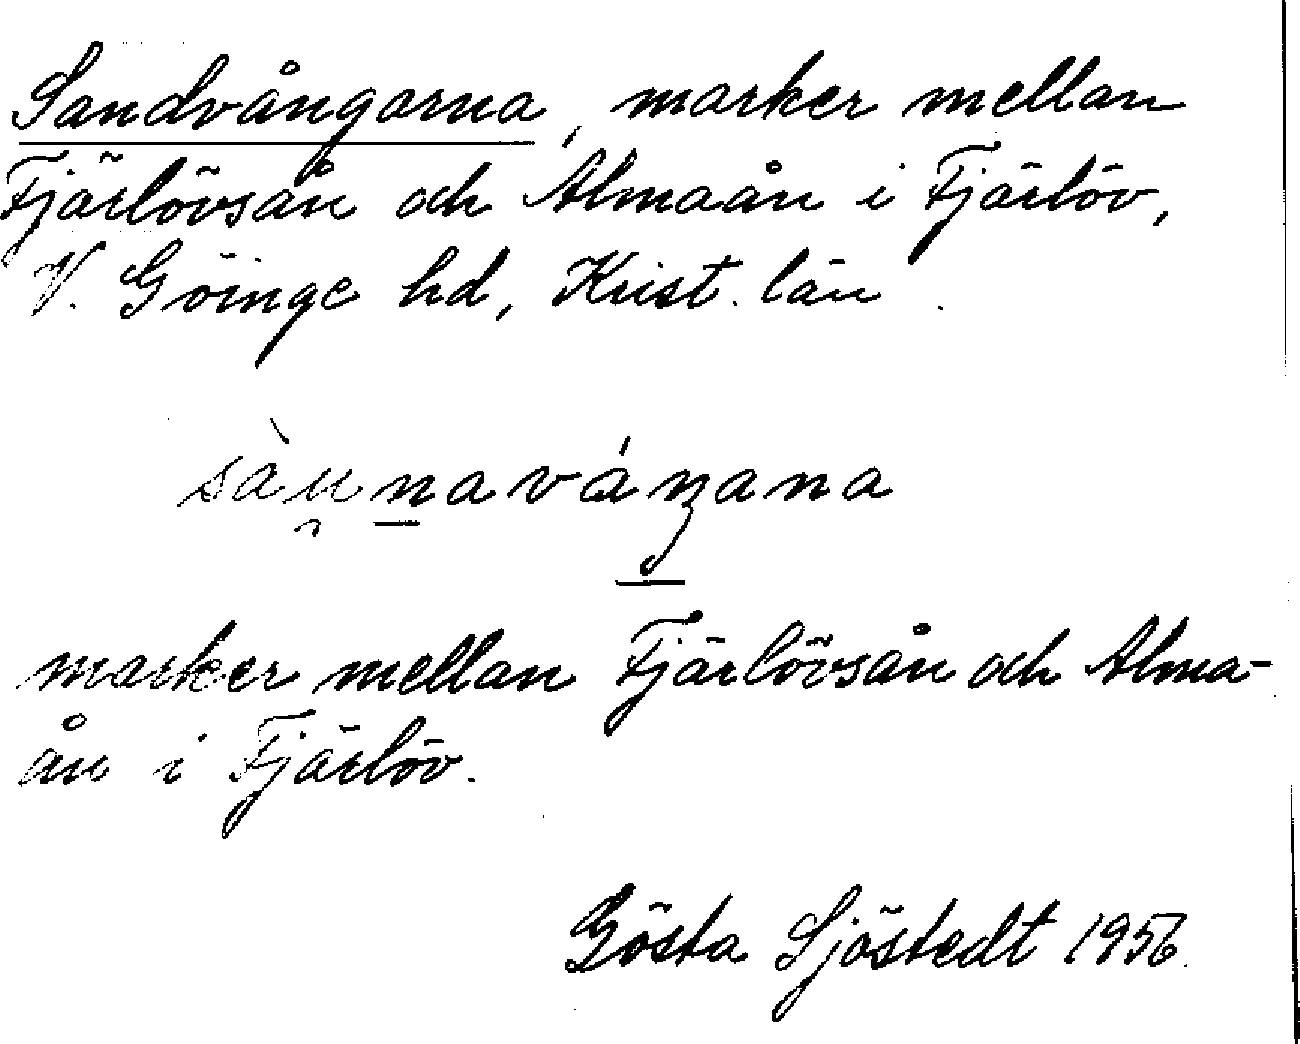 Sandvångarna, marker mellan
Fjärlövsån och Almaån i Fjärlöv,
V. Göinge hd, Krist. län
sàu̯n̲aváŋ̲ana
marker mellan Fjärlövsån och Alma-
ån i Fjärlöv.
Gösta Sjöstedt 1956.